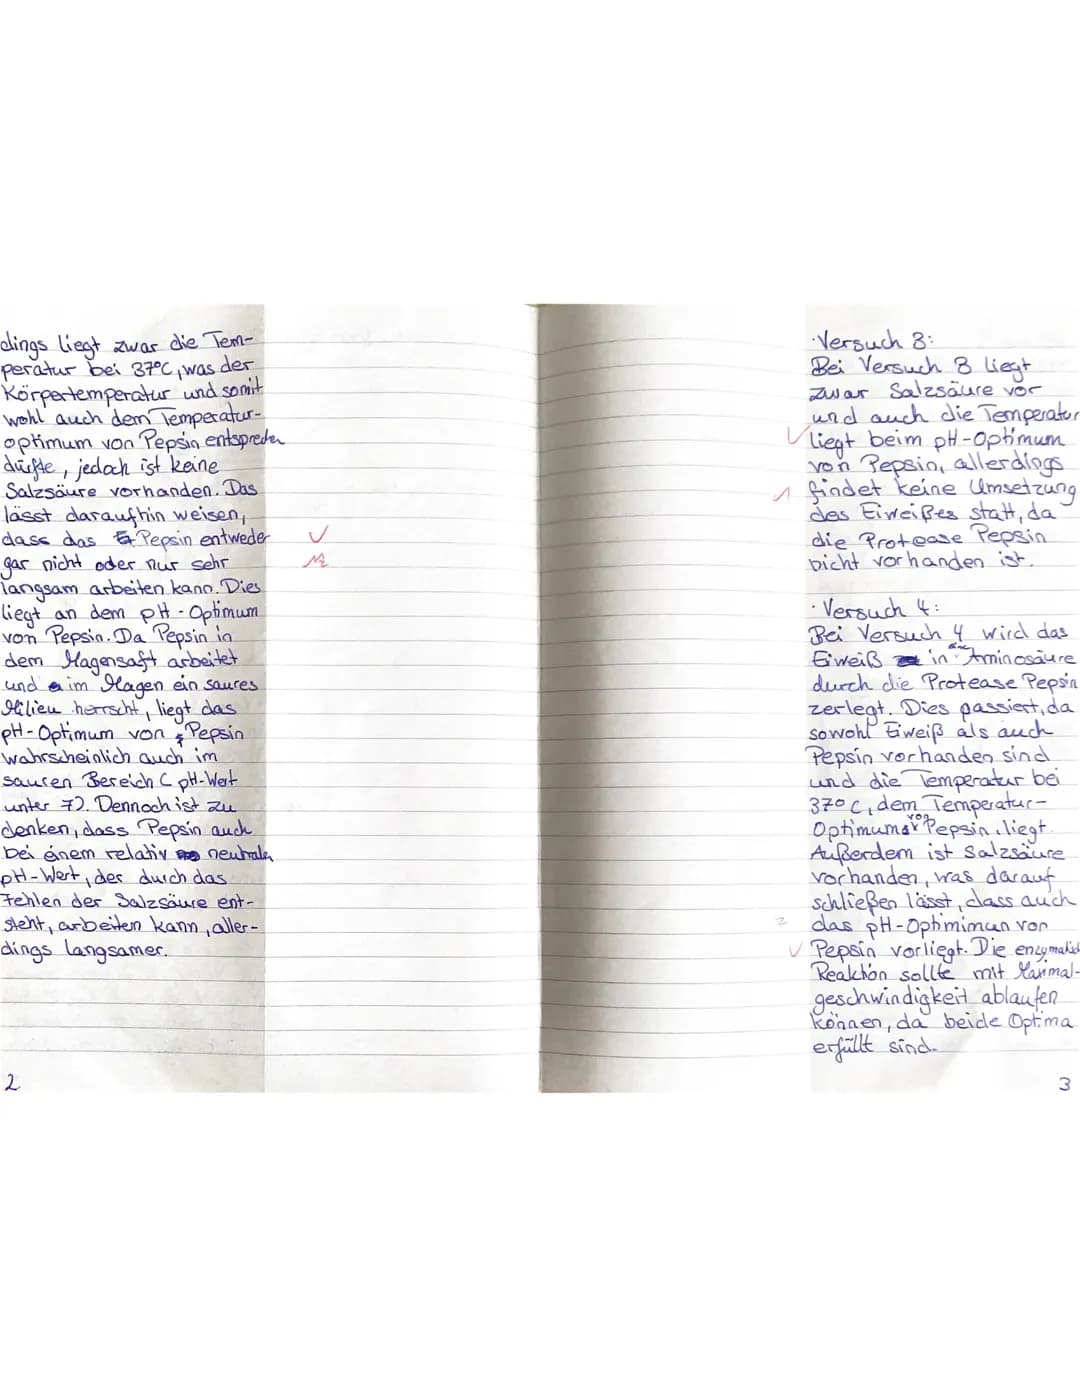 dings liegt zwar die Tem-
peratur bei 37°C, was der
Körpertemperatur und somit
wohl auch dem Temperatur-
optimum von Pepsin entsprechen
dürfte, jedoch ist keine
Salzsäure vorhanden. Das
lässt daraufhin weisen,
dass das Pepsin entweder
gar nicht oder nur sehr
langsam arbeiten kann. Dies
liegt an dem pH-Optimum
von Pepsin. Da Pepsin in
dem Magensaft arbeitet
und im Magen ein saures
Milieu herrscht, liegt das
pH-Optimum von Pepsin
wahrscheinlich auch im
sauren Bereich (pH-Wert
unter 7). Dennoch ist zu
denken, dass Pepsin auch
bei einem relativ neutralen
pH-Wert, der durch das
Fehlen der Salzsäure ent-
steht, arbeiten kann, aller-
dings langsamer.
2
· Versuch 3:
Bei Versuch 3 liegt
zwar Salzsäure vor
und auch die Temperatur
liegt beim pH-Optimum
von Pepsin, allerdings
findet keine Umsetzung
des Eiweißes statt, da
die Protease Pepsin
nicht vorhanden ist.
· Versuch 4:
Bei Versuch 4 wird das
Eiweiß in Aminosäure
durch die Protease Pepsin
zerlegt. Dies passiert, da
sowohl Eiweiß als auch
Pepsin vorhanden sind
und die Temperatur bei
37°C, dem Temperatur-
Optimums von Pepsin liegt.
Außerdem ist Salzsäure
vorhanden, was darauf
schließen lässt, dass auch
das pH-Optimimun von
Pepsin vorliegt. Die enzymatisch
Reaktion sollte mit Maximal-
geschwindigkeit ablaufen
können, da beide Optima
erfüllt sind.
3